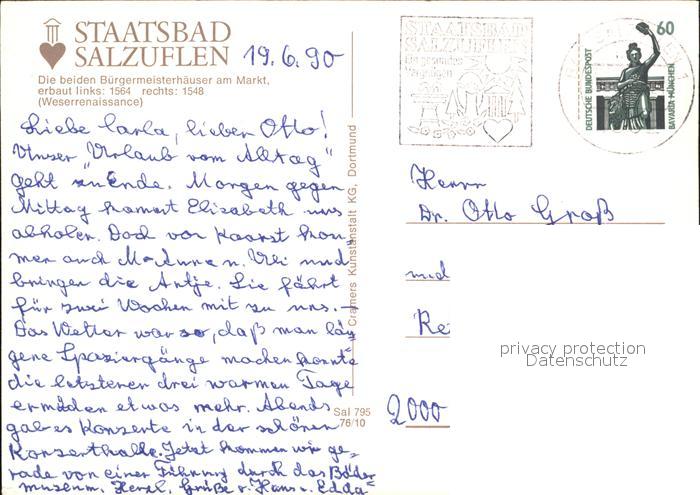 STAATSBAD
SALZUFLEN
19.6.90
Die beiden Bürgermeisterhäuser am Markt,
erbaut links: 1564 rechts: 1548
(Weserrenaissance)
Liebe Carla, lieber Otto!
Unser "Urlaub vom Alltag"
geht zu Ende. Morgen gegen
Mittag kommt Elisabeth uns
abholen. Doch vor kom-
men auch M. Anna u. Uli und
bringen die Antje. Sie fährt
für zwei Wochen mit zu uns. –
Das Wetter war so, daß man län-
gere Spaziergänge machen konnte
die letzteren drei warmen Tage
ermüden etwas mehr. Abends
gab es Konzerte in der schönen
Konzerthalle. Jetzt kommen wir ge-
rade von einer Führung durch das Bäder-
museum. Herzl. Grüße v. Hans u. Edda
Cramers Kunstanstalt KG, Dortmund
Sal 795
76/10
STAATSBAD
SALZUFLEN
Ein gesundes
Vergnügen
60
DEUTSCHE BUNDESPOST
BAVARIA MÜNCHEN
Herrn
Dr. Otto Groß
und
Re
2000
privacy protection
Datenschutz